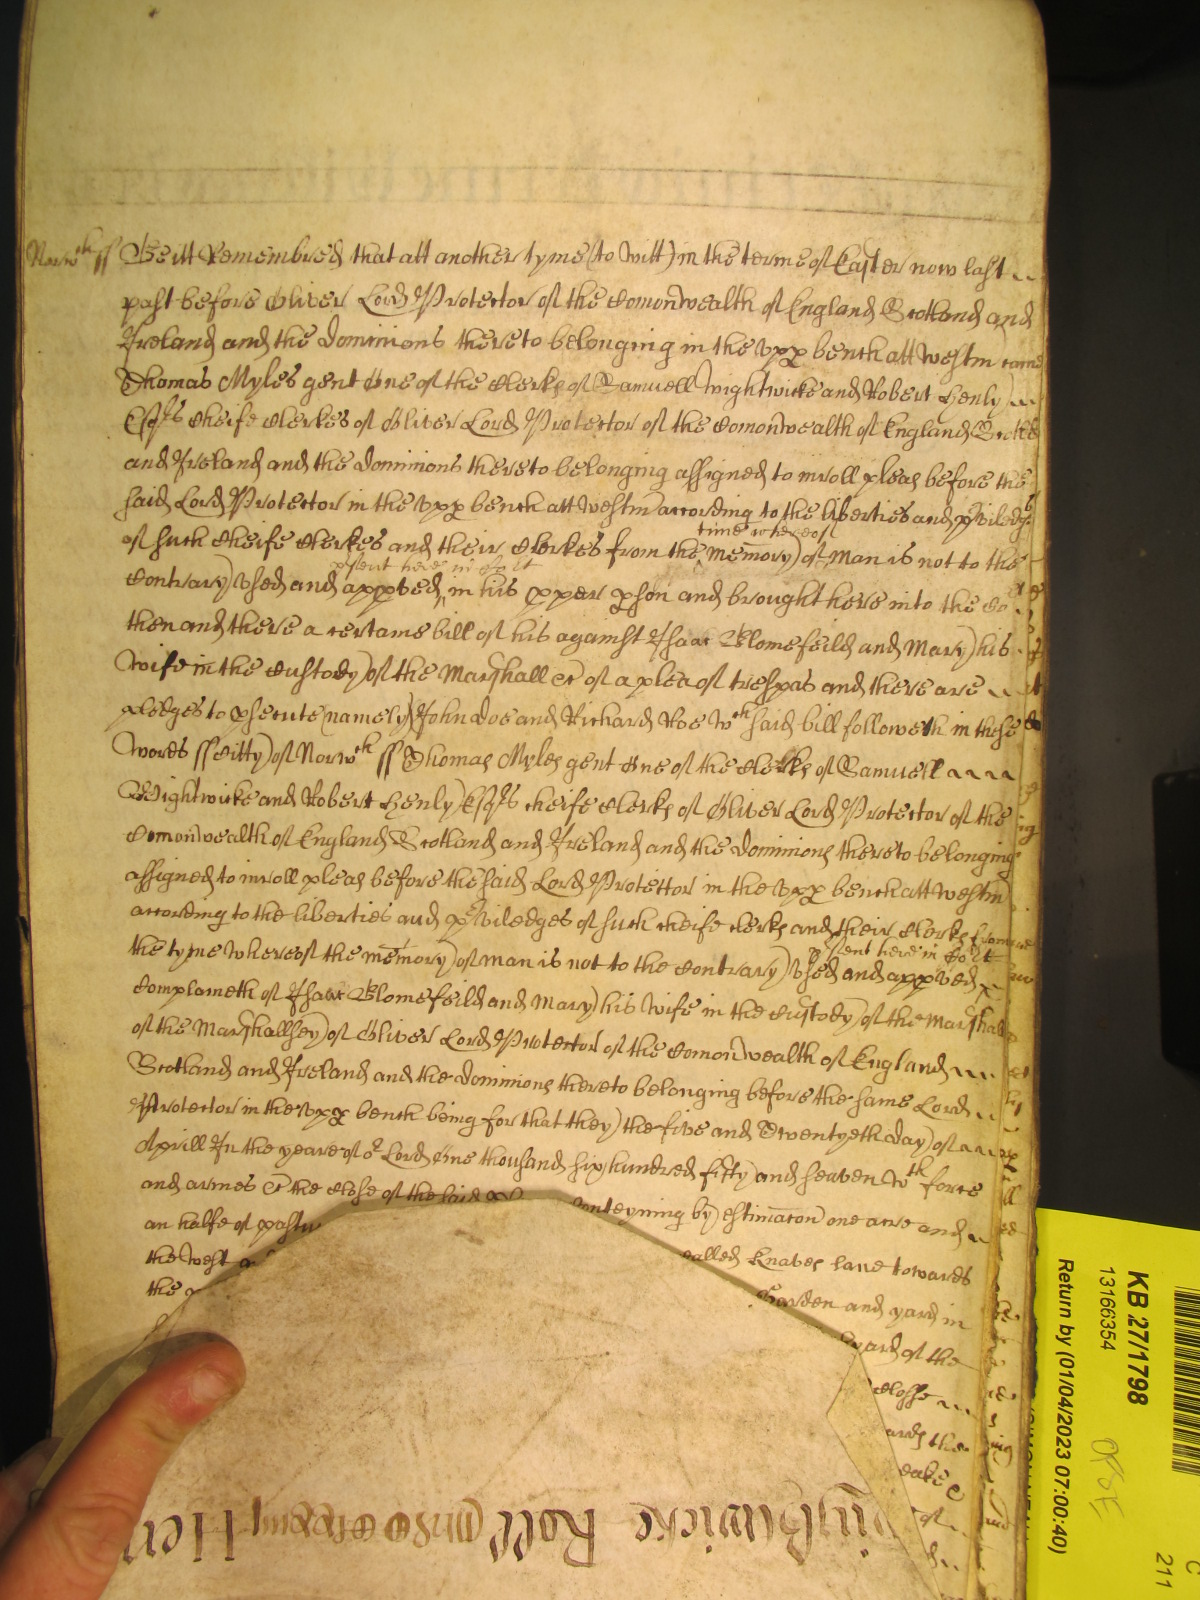 Norwch ss Be itt Remembred that att another tyme (to witt) in the terme of Easter now last
past before Oliver Lord Protector of the Comonwealth of England Scotland and
Ireland and the dominions thereto belonging in the upp bench att westm came
Thomas Myles gent One of the Clerks of Samuell Wightwicke and Robert Henly
Esqrs cheife Clerkes of Oliver Lord Protector of the Comonwealth of England Scotld
and Ireland and the dominions thereto belonging assigned to inroll pleas before the
said Lord Protector in the upp bench att westm according to the liberties and priviledges
time whereof
of such cheife Clerkes and their Clerkes from the memory of man is not to the
psent here in Co'rt
Contrary used and appved in his pper pson and brought here into the Co
then and there a certaine bill of his against Isaac Blomefeild and Mary his
wife in the Custody of the Marshall &c of a plea of trespas and there are
pledges to psecute (namely) John Doe and Richard Roe wch said bill followeth in these
words ss Citty of Norwch ss Thomas Myles gent One of the Clerks of Samuell
Wightwicke and Robert Henly Esqrs cheife Clerks of Oliver Lord Protector of the
Comonwealth of England Scotland and Ireland and the dominions thereto belonging
assigned to inroll pleas before the said Lord Protector in the upp bench att westm
according to the liberties and priviledges of such cheife clerks and their Clerks from
psent here in Co'rt
the tyme whereof the memory of man is not to the Contrary used and appved
Complaineth of Isaac Blomefeild and Mary his wife in the Custody of the Marshall
of the Marshallsey of Oliver Lord Protector of the Comonwealth of England
Scotland and Ireland and the dominions thereto belonging before the same Lord
Protector in the upp bench being for that they the five and Twentyeth day of
Aprill In the yeare of or Lord One thousand six hundred fifty and seaven wth force
and armes &c the Close of the said conteyning by estimacon one acre and
an halfe of pastu called Knaves lane towards
the west Garden and yard in
the yard of the
Closse
ards the
of
Wightwicke Roll
KB 27/1798
13166354
Return by (01/04/2023 07:00:40)
C
211